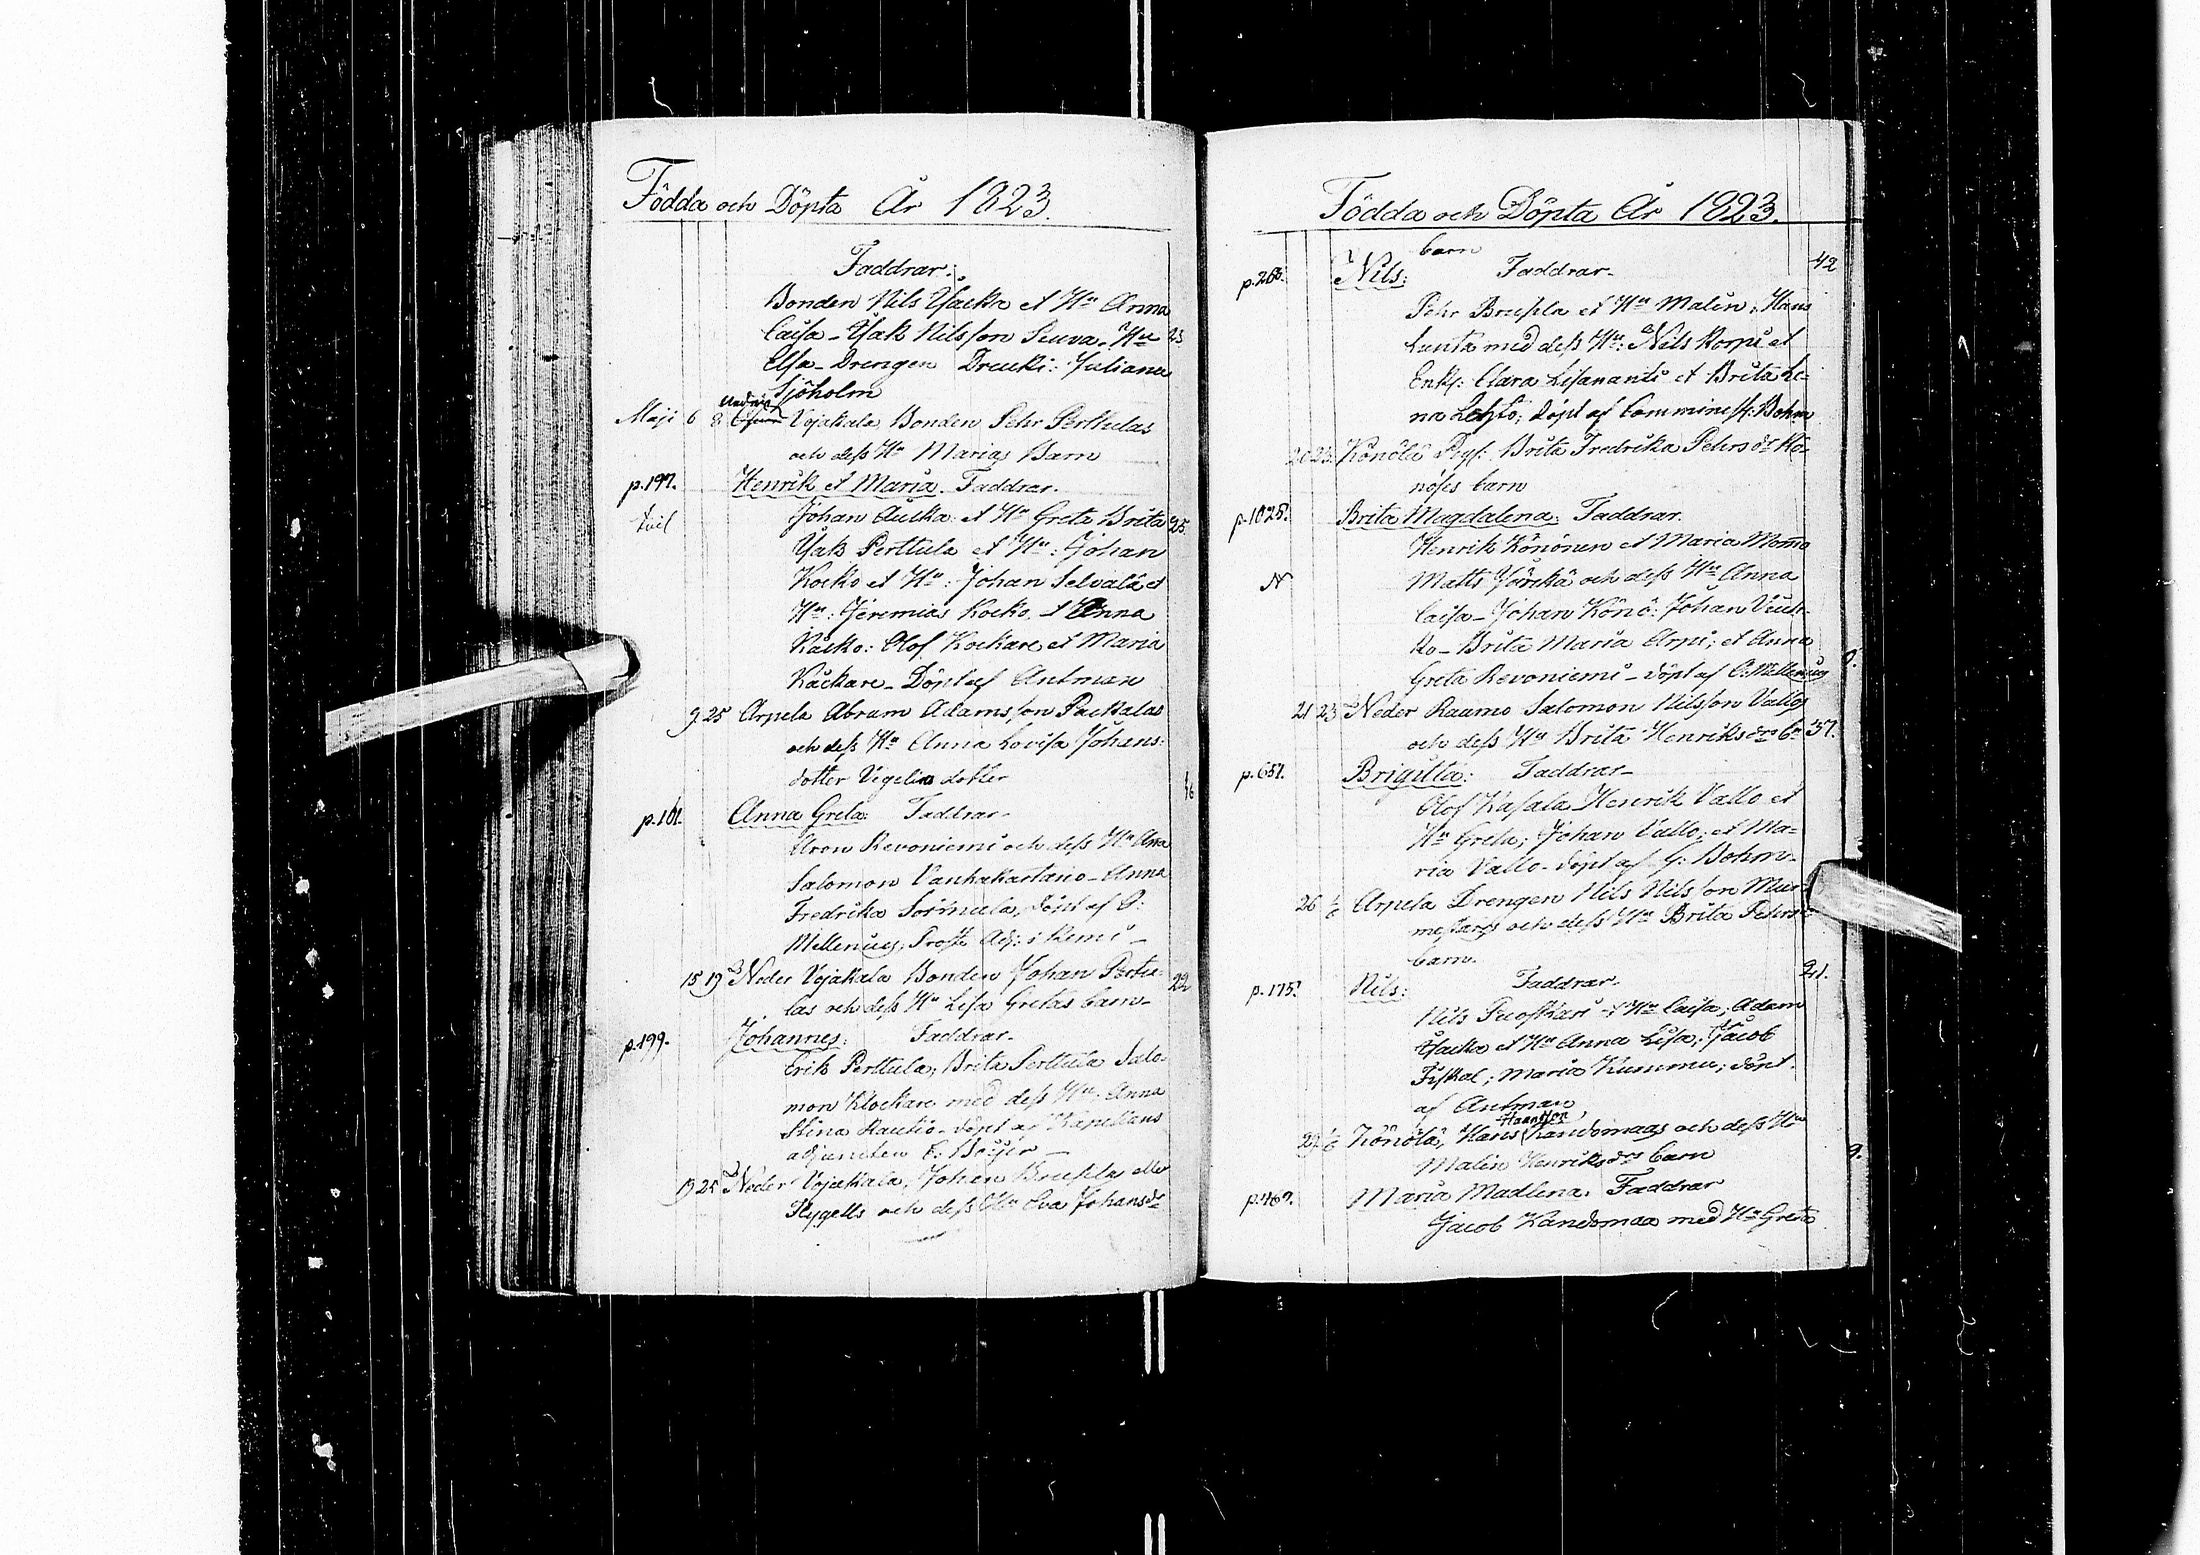 Födda och Döpta År 1823.
Faddrar:
Bonden Nils Yaakka et Hu Anna
Caisa - Isak Nilsson Suuva - Hu 23
Elsa - Drengen Dreuki: Juliana
Sjöholm
Maji 6 8 Vojakala Bonden Pehr Perttulas
och dess Hu Marias Barn
p.197. Henrik et Maria. Faddrar.
Johan Aulka et Hu Greta Brita 25.
Isak Perttula et Hu: Johan
Kocko et Hu: Johan Selvala et
Hu: Jeremias Kocko et Anna
Kacko: Olof Kockare et Maria
Kackare - Döpt af Antman
9 25 Arpela Abram Adamsson Packalas
och dess Hu Anna Lovisa Johans:
dotter Vegelia dotter
p.161. Anna Greta: Faddrar -
Aron Revoniemi och dess Hu Anna
Salomon Vanhakartano - Anna
Fredrika Sormula, döpt af O:
Mellenius, Prosts Adj: i Kemi -
15 19 Neder Vojakala Bonden Johan Perttu- 22
las och dess Hu Lisa Gretas barn -
p.199. Johannes: Faddrar.
Erik Perttula, Brita Perttula Salo-
mon Klockare med dess Hu: Anna
Stina Rautio - döpt af Kapellans
adjuncten
19 25 Neder Vojakala, Johan Bruslas eller
Flygells och dess Hu Eva Johansdr
Födda och Döpta År 1823.
barn
p.263. Nils: Faddrar - 42
Pehr Brusila et Hu Malin; Hans
Lunta med dess Hu: Nils Korpi et
Enkf: Clara Lisananti et Brita Le-
na Lehto; döpt af Comminist: Bohm
20 23. Könölä Pigf: Brita Fredrika Petersdr Kö-
nöses barn
p.1025. Brita Magdalena: Faddrar.
Henrik Könönen et Maria Momo
N Matts Yörckä och dess Hu Anna
Caisa - Johan Könö: Johan Vuok-
ko - Brita Maria Arpi; et Anna
Greta Revoniemi - döpt af O: Mellenius
21 23 Neder Raumo Salomon Nilsson Vallos
och dess Hu Brita Henriksdrs bn 37.
p.651. Brigitta: Faddrar -
Olof Kasala Henrik Vallo et
Hu Greta; Johan Vallo; et Ma-
ria Vallo - döpt af G: Bohm -
26 Arpela Drengen Nils Nilsson Mur-
mestares och dess Hu Brita Pehrsdr
barn.
p.175. Nils: Faddrar - 21.
Nils Puoskari et Hu Caisa; Adam
Yaakka et Hu Anna Lisa; Jacob
Fiskal; Maria Kummu; döpt.
af Antman
Hansson
29 Könölä, Hans Kandomaas och dess Hu
Malin Henriksdrs barn 9.
p.469. Maria Madlena: Faddrar
Jacob Kandomaa med Hu Greta